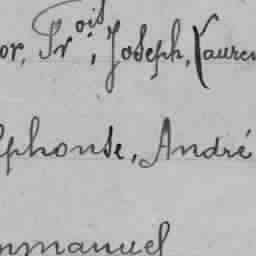 or, Frois, Joseph, Lauren
lphonse, André
mmanuel